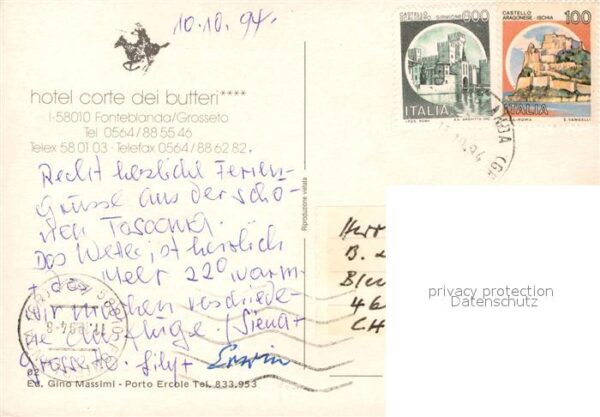 10.10.94.
CASTELLO SIRMIONE 600
ITALIA
CASTELLO ARAGONESE - ISCHIA 100
ITALIA
hotel corte dei butteri****
I-58010 Fonteblanda/Grosseto
Tel 0564/88 55 46
Telex 58 01 03 - Telefax 0564/88 62 82
Recht herzliche Ferien-
Grüsse aus der schö-
nen Toscana.
Das Wetter ist herrlich
+ das Meer 22° warm.
Wir machen verschiede-
ne Ausflüge. (Siena +
Grosseto. Lily + Erwin
Riproduzione vietata
Herr
B.
46
CH
privacy protection
Datenschutz
Ed. Gino Massimi - Porto Ercole Tel. 833.953